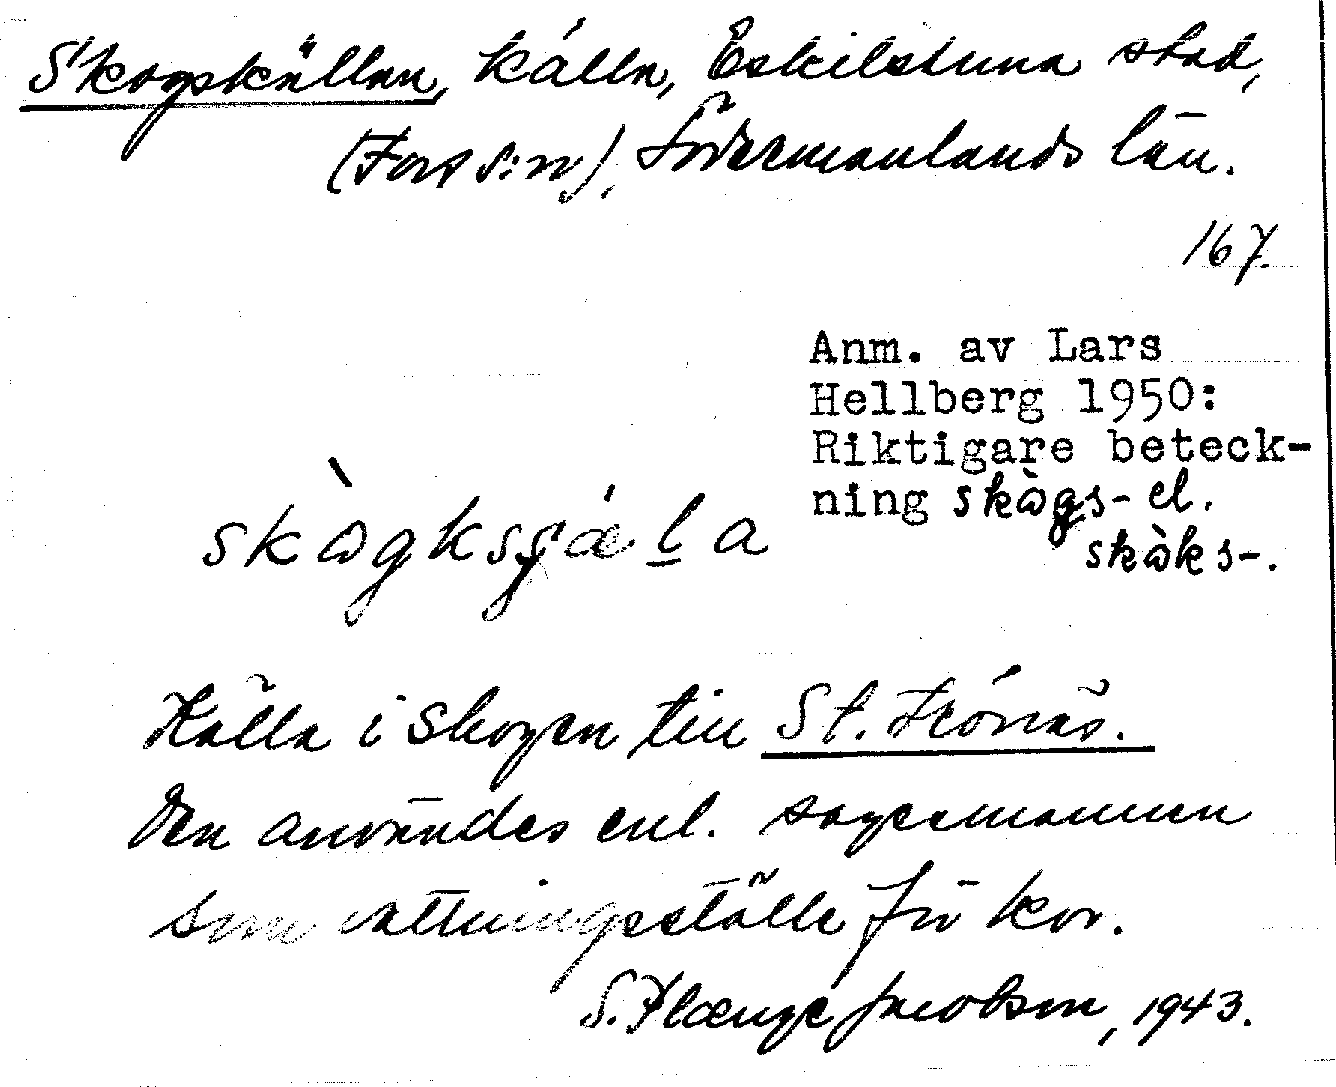 Skogskällan, källa, Eskilstuna stad,
(Fors s:n), Södermanlands län.
167.
Anm. av Lars
Hellberg 1950:
Riktigare beteck-
ning skògs- el.
skòks-.
skògksjæla
Källa i skogen till St.
Den användes enl. sagesmannen
som vattningsställe för kor.
S. Flænge Jacobson, 1943.